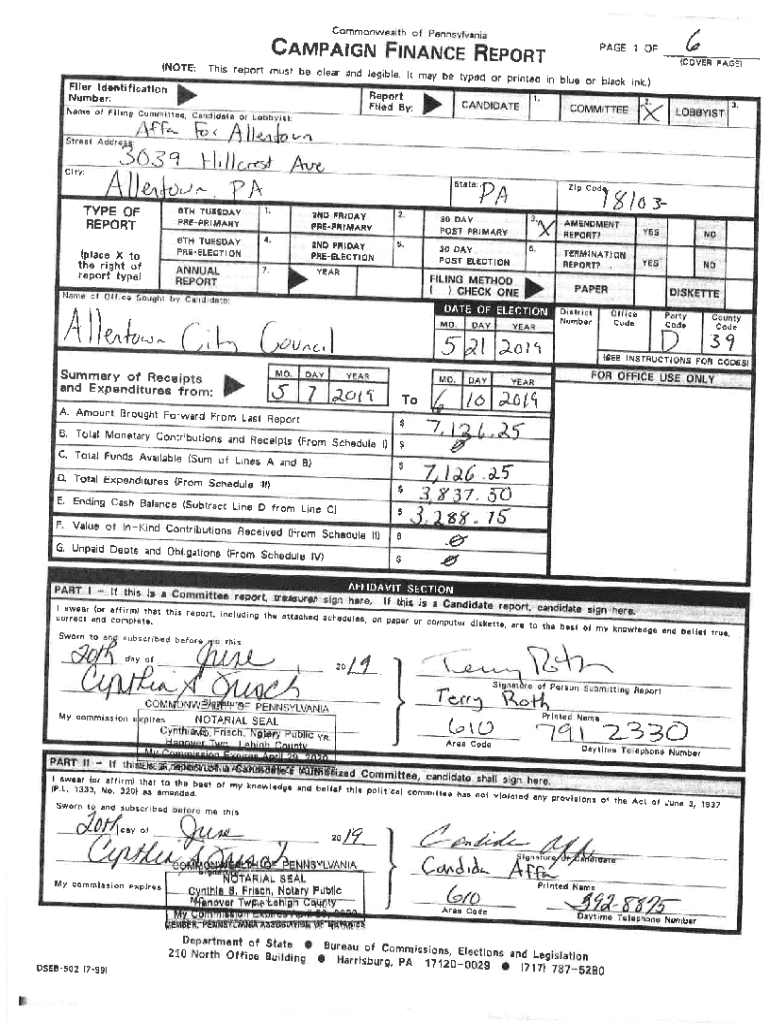 Commonwealth of Pennsylvania
CAMPAIGN FINANCE REPORT
PAGE 1 OF 6
(COVER PAGE)
(NOTE: This report must be clear and legible. It may be typed or printed in blue or black ink.)
Filer Identification Number:
Report Filed By:
CANDIDATE 1.
COMMITTEE 2. X
LOBBYIST 3.
Name of Filing Committee, Candidate or Lobbyist:
Affa For Allentown
Street Address:
3039 Hillcrest Ave
City: Allentown, PA
State: PA
Zip Code 18103-
TYPE OF REPORT
(place X to the right of report type)
6TH TUESDAY PRE-PRIMARY 1.
2ND FRIDAY PRE-PRIMARY 2.
30 DAY POST PRIMARY 3. X
AMENDMENT REPORT? YES NO
6TH TUESDAY PRE-ELECTION 4.
2ND FRIDAY PRE-ELECTION 5.
30 DAY POST ELECTION 6.
TERMINATION REPORT? YES NO
ANNUAL REPORT 7.
YEAR
FILING METHOD ( ) CHECK ONE
PAPER
DISKETTE
Name of Office Sought by Candidate:
Allentown City Council
DATE OF ELECTION
MO. DAY YEAR
5 21 2019
District Number
Office Code
Party Code D
County Code 39
(SEE INSTRUCTIONS FOR CODES)
Summary of Receipts and Expenditures from:
MO. DAY YEAR
5 7 2019
To
MO. DAY YEAR
6 10 2019
FOR OFFICE USE ONLY
A. Amount Brought Forward From Last Report $ 7,126.25
B. Total Monetary Contributions and Receipts (From Schedule I) $ 0
C. Total Funds Available (Sum of Lines A and B) $ 7,126.25
D. Total Expenditures (From Schedule III) $ 3,837.50
E. Ending Cash Balance (Subtract Line D from Line C) $ 3,288.75
F. Value of In-Kind Contributions Received (From Schedule II) $ 0
G. Unpaid Debts and Obligations (From Schedule IV) $ 0
AFFIDAVIT SECTION
PART I - If this is a Committee report, treasurer sign here. If this is a Candidate report, candidate sign here.
I swear (or affirm) that this report, including the attached schedules, on paper or computer diskette, are to the best of my knowledge and belief true, correct and complete.
Sworn to and subscribed before me this
20th day of June 2019
Cynthia S Frisch
Signature
COMMONWEALTH OF PENNSYLVANIA
NOTARIAL SEAL
Cynthia S. Frisch, Notary Public
Hanover Twp., Lehigh County
My Commission Expires April 29, 2020
My commission expires
YR.
Terry Roth
Signature of Person Submitting Report
Terry Roth
Printed Name
610 791 2330
Area Code
Daytime Telephone Number
PART II - If this is a report of a Candidate's Authorized Committee, candidate shall sign here.
I swear (or affirm) that to the best of my knowledge and belief this political committee has not violated any provisions of the Act of June 3, 1937
(P.L. 1333, No. 320) as amended.
Sworn to and subscribed before me this
20th day of June 2019
Cynthia S Frisch
COMMONWEALTH OF PENNSYLVANIA
NOTARIAL SEAL
Cynthia S. Frisch, Notary Public
Hanover Twp., Lehigh County
My Commission Expires April 29, 2020
MEMBER, PENNSYLVANIA ASSOCIATION OF NOTARIES
My commission expires
Candida Affa
Signature of Candidate
Candida Affa
Printed Name
610 392-8875
Area Code
Daytime Telephone Number
Department of State ● Bureau of Commissions, Elections and Legislation
210 North Office Building ● Harrisburg, PA 17120-0029 ● (717) 787-5280
DSEB-502 (7-99)